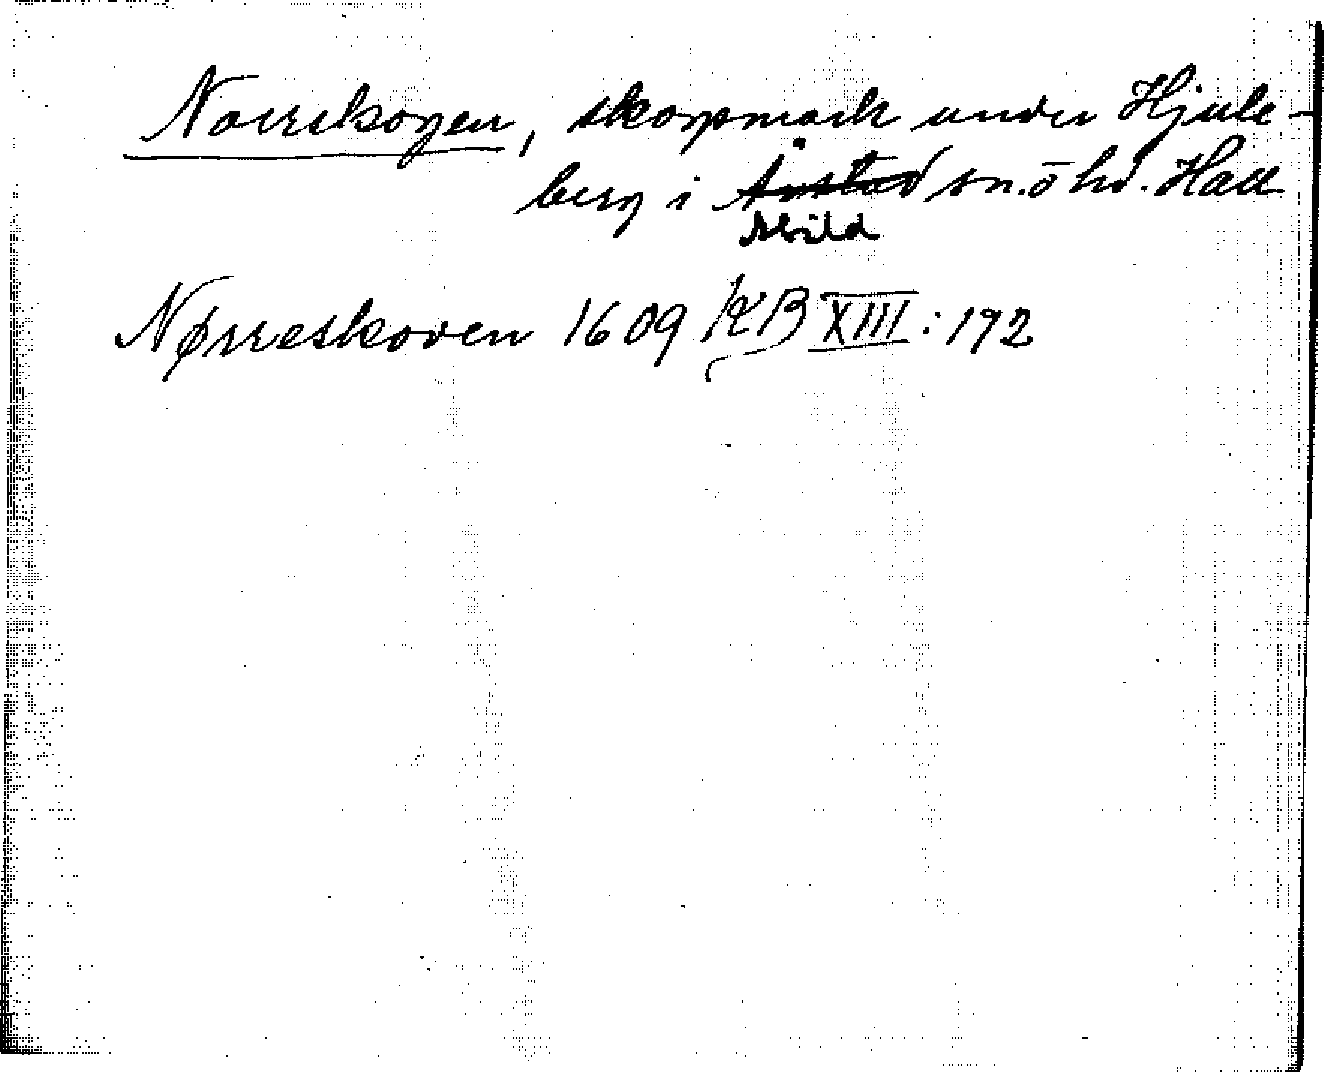 Norrskogen, skogsmark under Hjule-
berg i Årstad sn. o hd. Hall
Abild
Nørreskoven 1609 KB XIII: 172